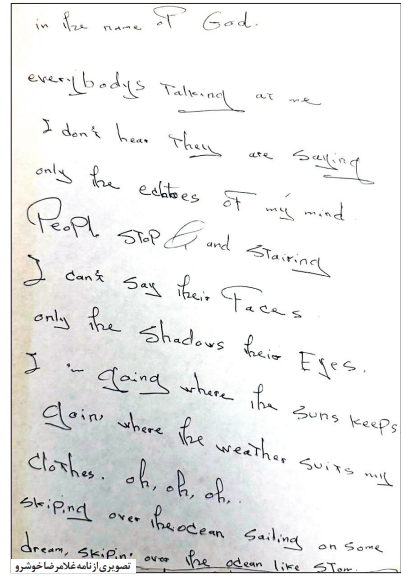 in the name of God.
everybodys Talking at me
I don't hear They are saying
only the echoes of my mind
People STOP and STairing
I can't say their Faces
only the Shadows their Eyes.
I'm going where the suns keeps
Goin, where the weather suits my
Clothes. oh, oh, oh,.
skiping over the ocean sailing on some
dream, skipin' over the ocean like STorm
تصویری از نامه غلامرضا خوشرو